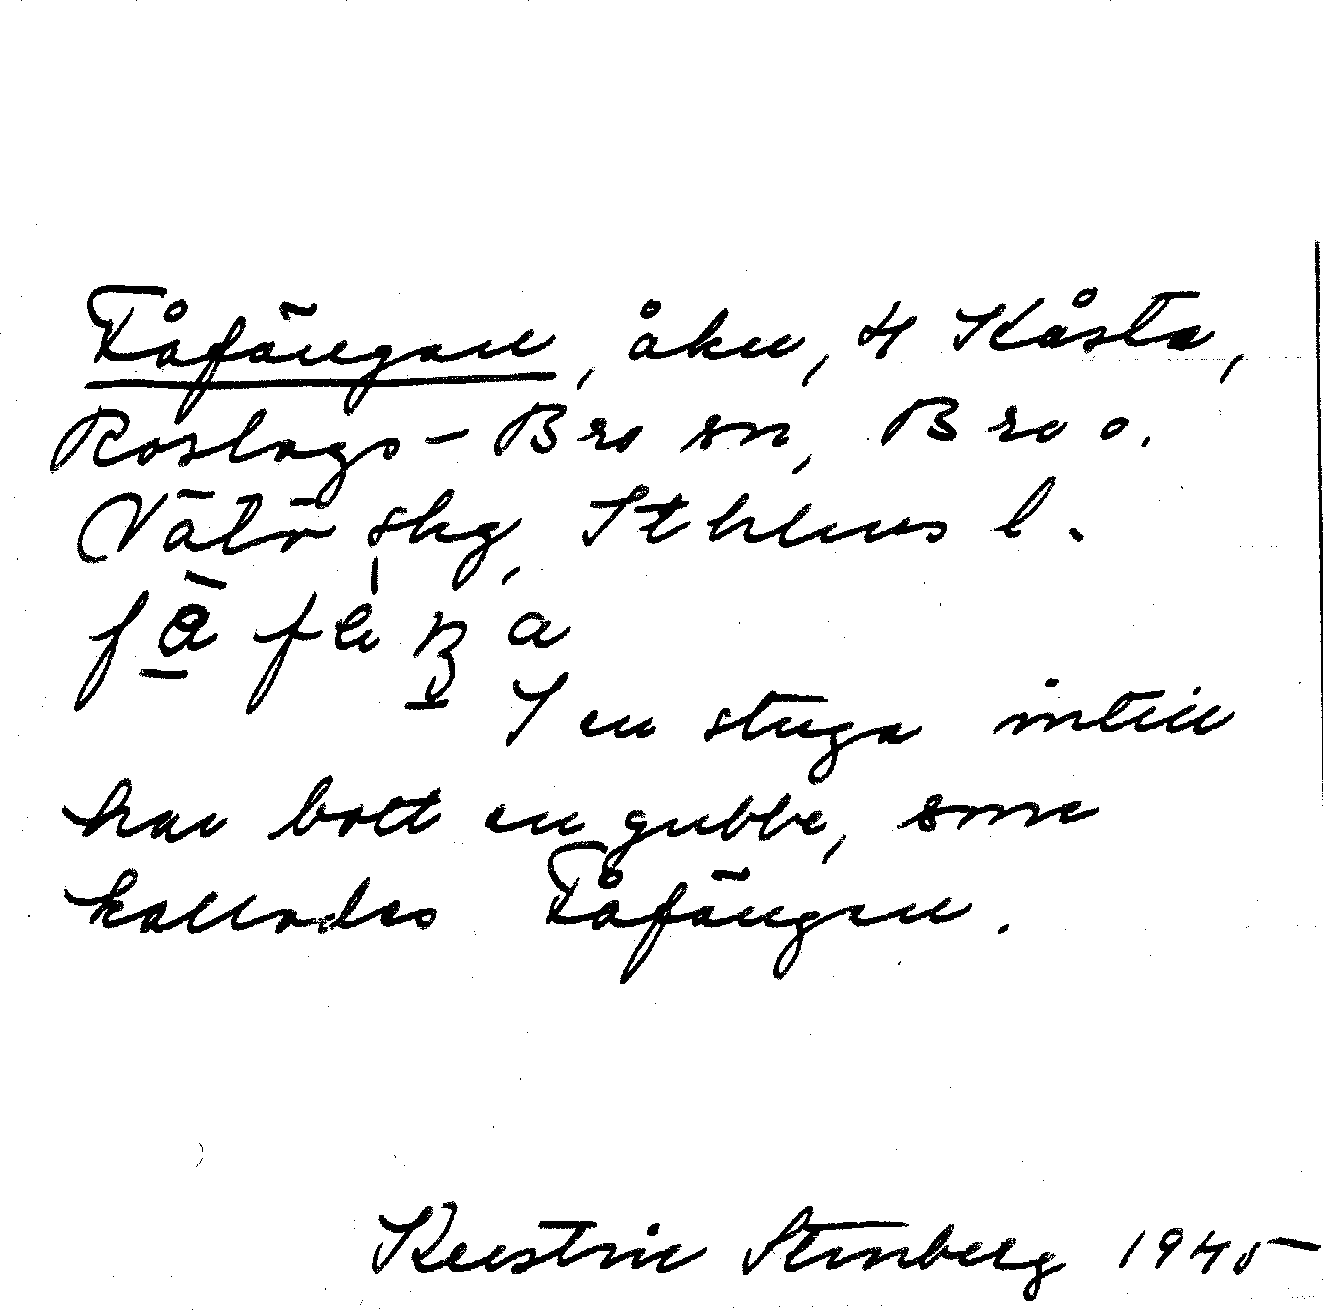 Fåfängan, åker, 4 Kåsta,
Roslags-Bro sn, Bro o.
Vätö skg, Sthlms l.
I en stuga intill
har bott en gubbe, som
kallades Fåfängan.
Kerstin Stenberg 1945